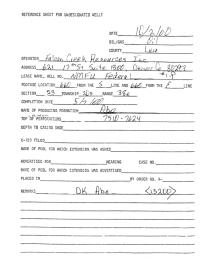 REFERENCE SHEET FOR UNDESIGNATED WELLS
DATE 10/2/00
OIL/GAS Oil
COUNTY Lea
OPERATOR Falcon Creek Resources Inc
ADDRESS 621 17th St Suite 1800 Denver Co 80293
LEASE NAME, WELL NO. NMFU Federal #1
FOOTAGE LOCATION 660 FROM THE S LINE AND 660 FROM THE E LINE
SECTION TOWNSHIP RANGE 38e
COMPLETION DATE 5/5/00
NAME OF PRODUCING FORMATION Abo
TOP OF PERFORATIONS 7510-7624
DEPTH TO CASING SHOE
C-123 FILED
NAME OF POOL FOR WHICH EXTENSION WAS ASKED
ADVERTISED FOR HEARING CASE NO.
NAME OF POOL FOR WHICH EXTENSION WAS ADVERTISED
PLACED IN BY ORDER NO. R-
REMARKS DK Abo <15200>